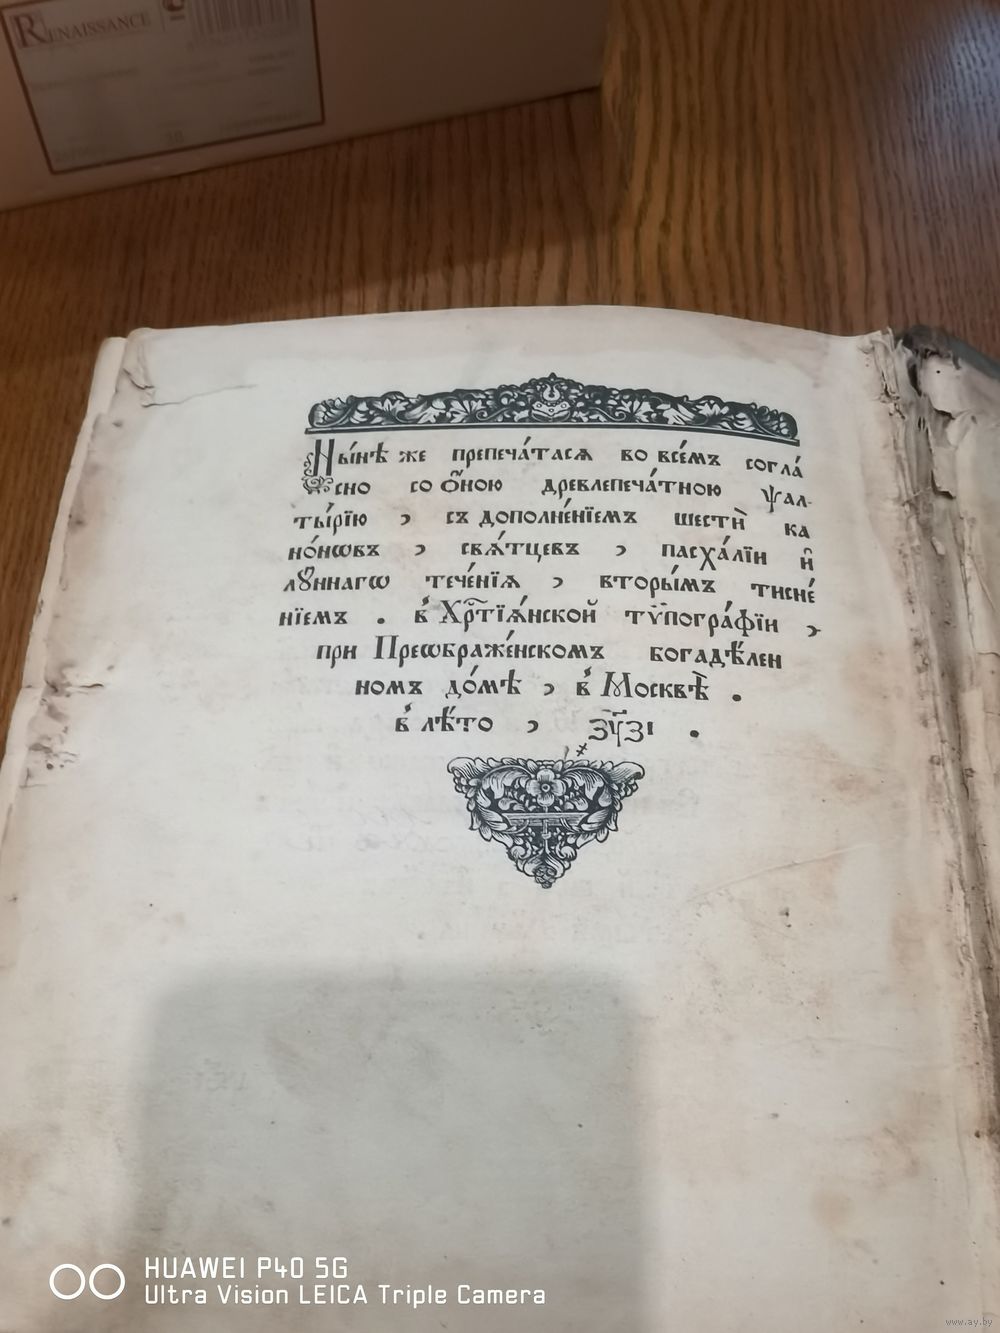 RENAISSANCE
38
Ны́нѣ же препеча́тасѧ во все́мъ согла́
сно со ѻ҆́ною древлепеча́тною ѱал-
ты́рїю , съ дополне́нїемъ шестѝ ка
но́нѡвъ , свѧ́тцевъ , пасха́лїи и҆
лꙋ́ннагѡ тече́нїѧ , вторы́мъ тисне́
нїемъ . в̾ Хрⷭ҇тїѧ́нской тѷпогра́фїи ,
при Преѡбраже́нскомъ богадѣ́лен
номъ до́мѣ , в̾ Москвѣ̀ .
в̾ лѣ́то , ҂зу҃зі .
HUAWEI P40 5G
Ultra Vision LEICA Triple Camera
www.ay.by